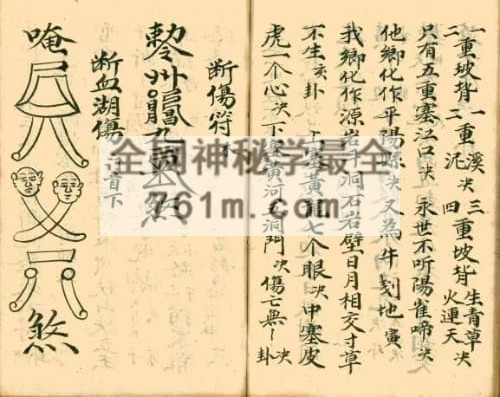 一重坡背一重溪 三重坡背生青草
二 二 泥决 四 火連天决
只有五重塞江口决 永世不听陽雀啼决
他鄉化作平陽 决 又為牛刻地寅
我鄉化作源岩 洞石岩壁日月相交寸草
不生亥卦 塞黄 七个眼决中塞皮
虎一个心决下塞黄河 洞門决傷亡無 卦决
断傷符
九 煞
断血湖傷 首下
唵 煞
全网神秘学最全
761m.com